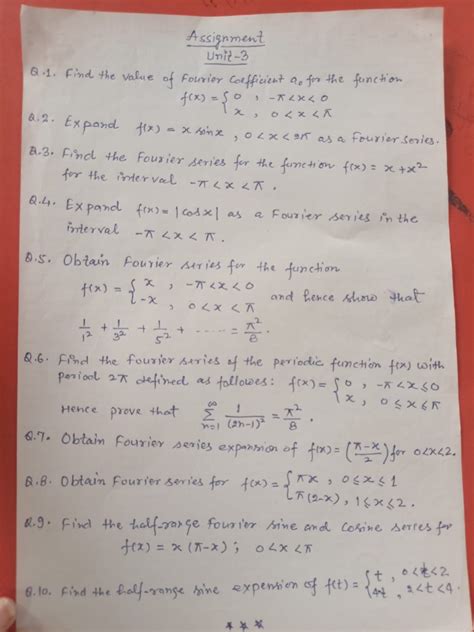 Assignment
Unit-3
Q.1. Find the value of Fourier Coefficient a₀ for the function
f(x) = { 0 , -π<x<0
x , 0<x<π
Q.2. Expand f(x) = x sinx , 0<x<2π as a Fourier series.
Q.3. Find the Fourier series for the function f(x) = x+x²
for the interval -π<x<π.
Q.4. Expand f(x) = |cosx| as a Fourier series in the
interval -π<x<π.
Q.5. Obtain Fourier series for the function
f(x) = { x , -π<x<0
-x , 0<x<π and hence show that
1/1² + 1/3² + 1/5² + ...... = π²/8.
Q.6. Find the Fourier series of the periodic function f(x) with
period 2π defined as follows: f(x) = { 0 , -π<x≤0
x , 0≤x≤π
Hence prove that ∞∑n=1 1/(2n-1)² = π²/8.
Q.7. Obtain Fourier series expansion of f(x) = (π-x/2) for 0<x<2.
Q.8. Obtain Fourier series for f(x) = { πx , 0≤x≤1
π(2-x), 1≤x≤2.
Q.9. Find the half-range Fourier sine and cosine series for
f(x) = x(π-x) ; 0<x<π
Q.10. Find the half-range sine expension of f(t) = { t , 0<t<2
, 2<t<4.
* * *